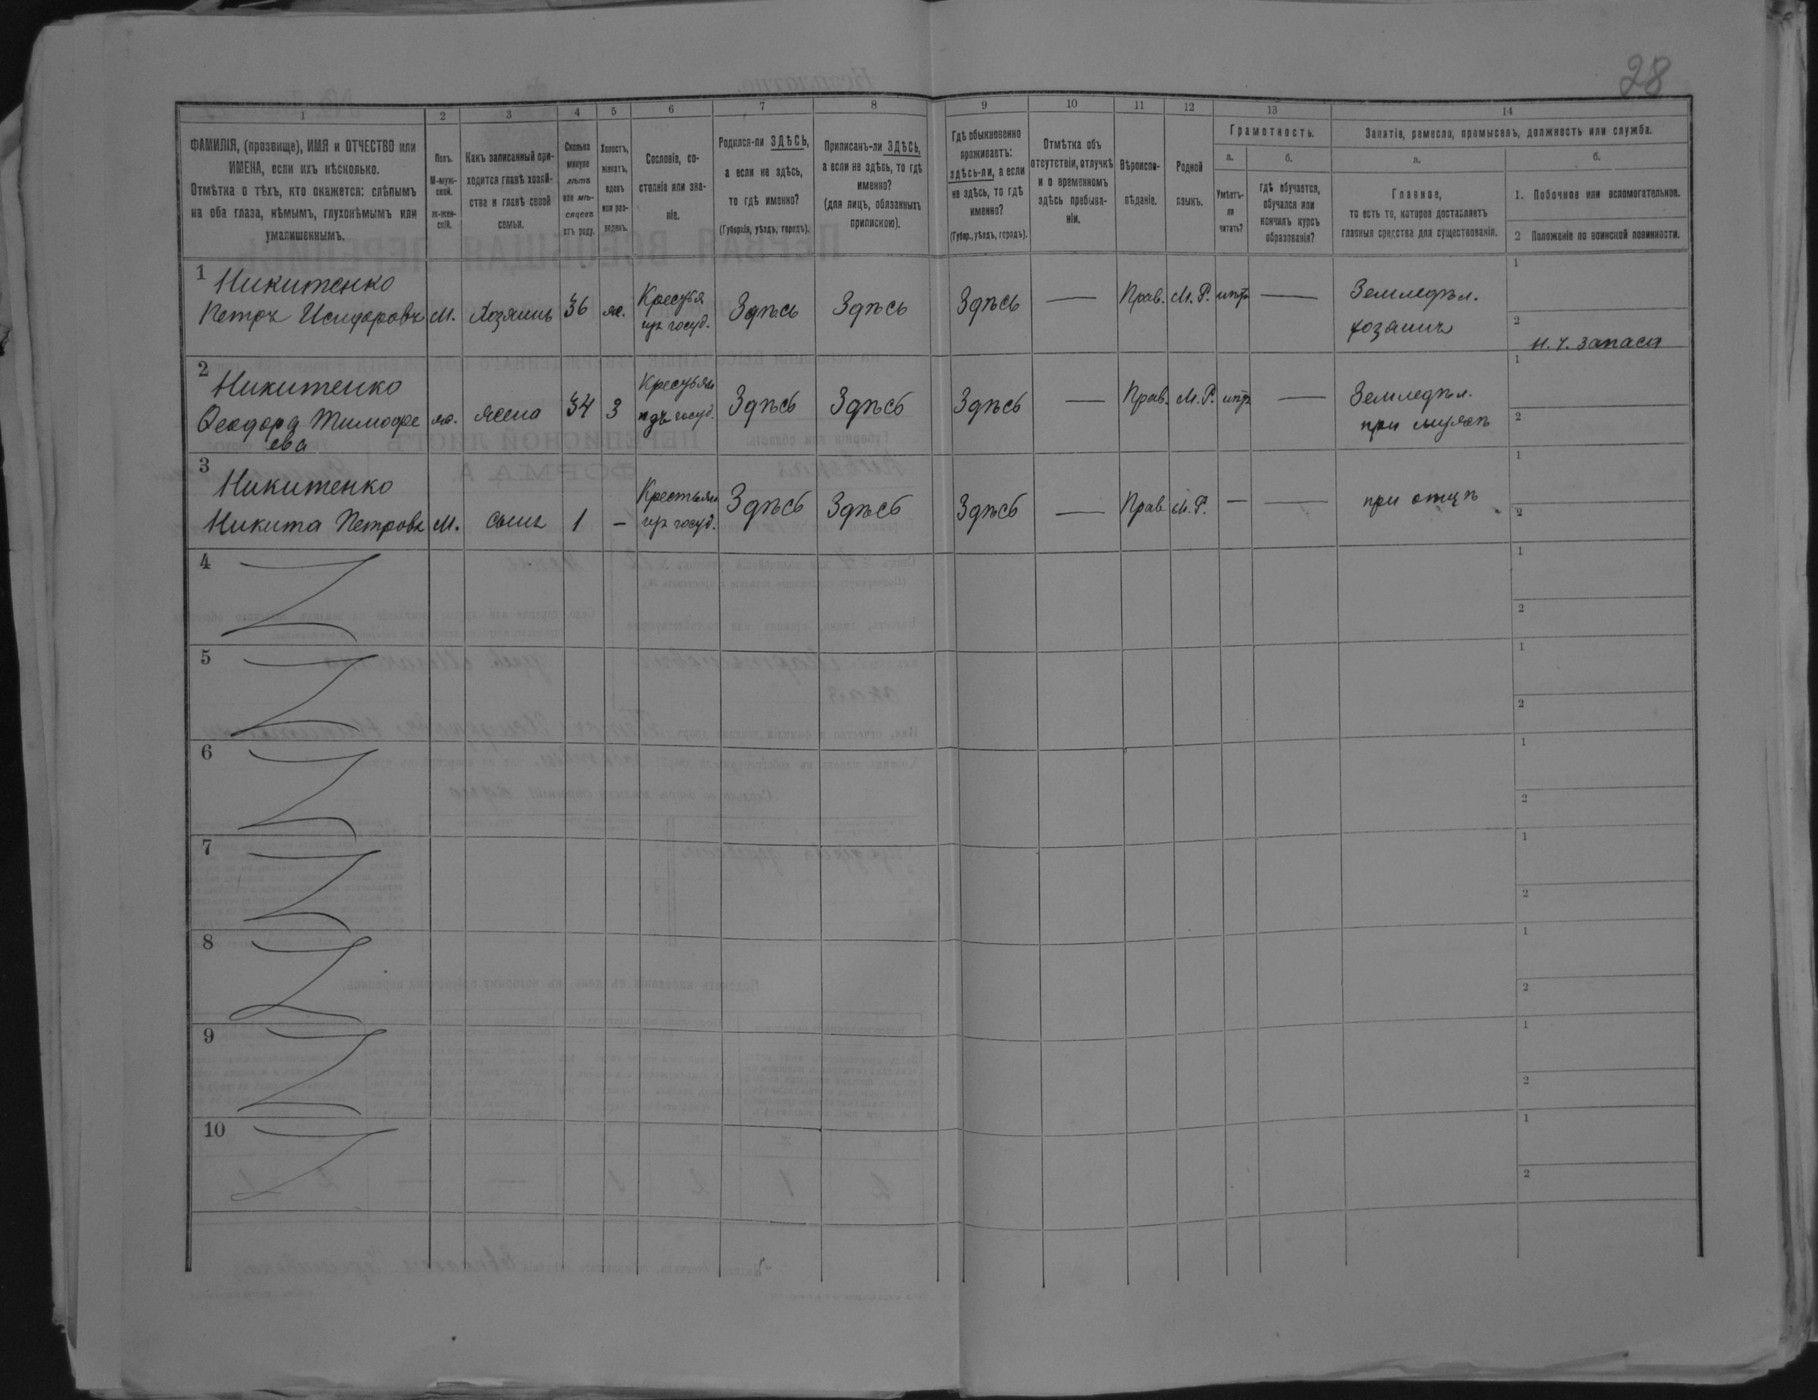 28
1 2 3 4 5 6 7 8 9 10 11 12 13 14
ФАМИЛІЯ, (прозвище), ИМЯ и ОТЧЕСТВО или
ИМЕНА, если ихъ нѣсколько.
Отмѣтка о тѣхъ, кто окажется: слѣпымъ
на оба глаза, нѣмымъ, глухонѣмымъ или
умалишеннымъ.
Полъ.
М-муж-
ской.
ж-жен-
скій.
Какъ записанный при-
ходится главѣ хозяй-
ства и главѣ своей
семьи.
Сколько
минуло
лѣтъ
или мѣ-
сяцевъ
отъ роду.
Холостъ,
женатъ,
вдовъ
или раз-
веденъ.
Сословіе, со-
стояніе или зва-
ніе.
Родился-ли ЗДѢСЬ,
а если не здѣсь,
то гдѣ именно?
(Губернія, уѣздъ, городъ).
Приписанъ-ли ЗДѢСЬ,
а если не здѣсь, то гдѣ
именно?
(для лицъ, обязанныхъ
припискою).
Гдѣ обыкновенно
проживаетъ:
здѣсь-ли, а если
не здѣсь, то гдѣ
именно?
(Губер., уѣздъ, городъ).
Отмѣтка объ
отсутствіи, отлучкѣ
и о временномъ
здѣсь пребыва-
ніи.
Вѣроиспо-
вѣданіе.
Родной
языкъ.
Грамотность.
а.
Умѣетъ-
ли
читать?
б.
гдѣ обучается,
обучался или
кончилъ курсъ
образованія?
Занятіе, ремесло, промыселъ, должность или служба.
а.
Главное,
то есть то, которое доставляетъ
главныя средства для существованія.
б.
1. Побочное или вспомогательное.
2 Положеніе по воинской повинности.
1 Никитенко
Петръ Исидоровъ м. Хозяинъ 36 ж. Здѣсь Здѣсь Здѣсь — Прав. М. Р. — Земледѣл.
хозяинъ
1
2 н. ч. запаса
2 Никитенко
Феодора Тимофе
ева ж. жена 34 з Здѣсь Здѣсь Здѣсь — Прав. М. Р. — Земледѣл.
при мужѣ
1
2
3 Никитенко
Никита Петровъ м. сынъ 1 – Здѣсь Здѣсь Здѣсь — Прав М. Р. — — при отцѣ
1
2
4
1
2
5
1
2
6
1
2
7
1
2
8
1
2
9
1
2
10
1
2